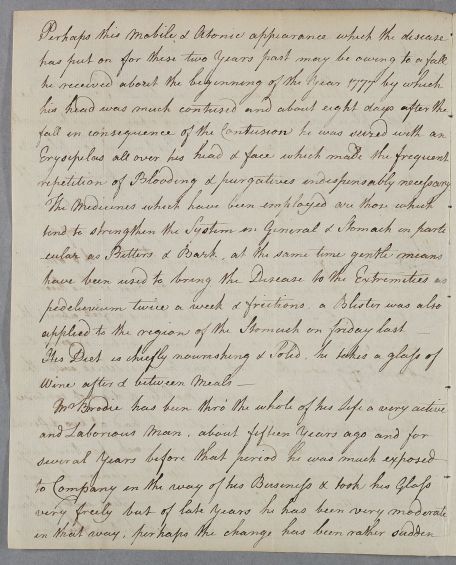 Perhaps this Mobile & Atonic appearance which the disease
has put on for these two Years past may be owing to a fall
he received about the beginning of the Year 1777 by which
his head was much contused and about eight days after the
fall in consequence of the Contusion he was seized with an
Erysipilas all over his head & face which made the frequent
repetition of Blooding & purgatives indispensably necessary
The Medicines which have been employed are those which
tend to strengthen the System in General & Stomach in parti
cular as Bitters & Bark, at the same time gentle means
have been used to bring the Disease to the Extremities as
pediluvium twice a week & frictions, a Blister was also
applied to the region of the Stomach on friday last —
His Diet is chiefly nourishing & Solid, he takes a glass of
Wine after & between Meals —
Mr Brodie has been thro' the whole of his life a very active
and Laborious Man, about fifteen Years ago and for
several Years before that period he was much exposed
to Company in the way of his Business & took his Glass
very freely but of late Years he has been very moderate
in that way, perhaps the change has been rather sudden